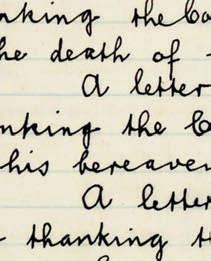 nking the Bo
he death of
A letter
nking the B
his bereave
A letter
thanking t